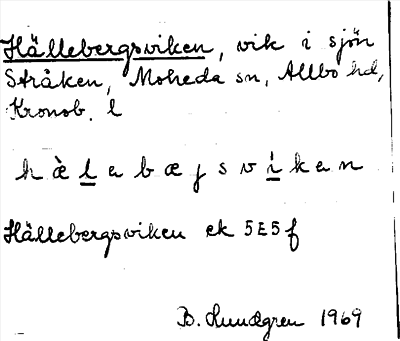 Hällebergsviken, vik i sjön
Stråken, Moheda sn, Allbo hd,
Kronob. l
h æ̀ l a b æ j s v i k a n
Hällebergsviken ek 5E5f
B. Lundgren 1969